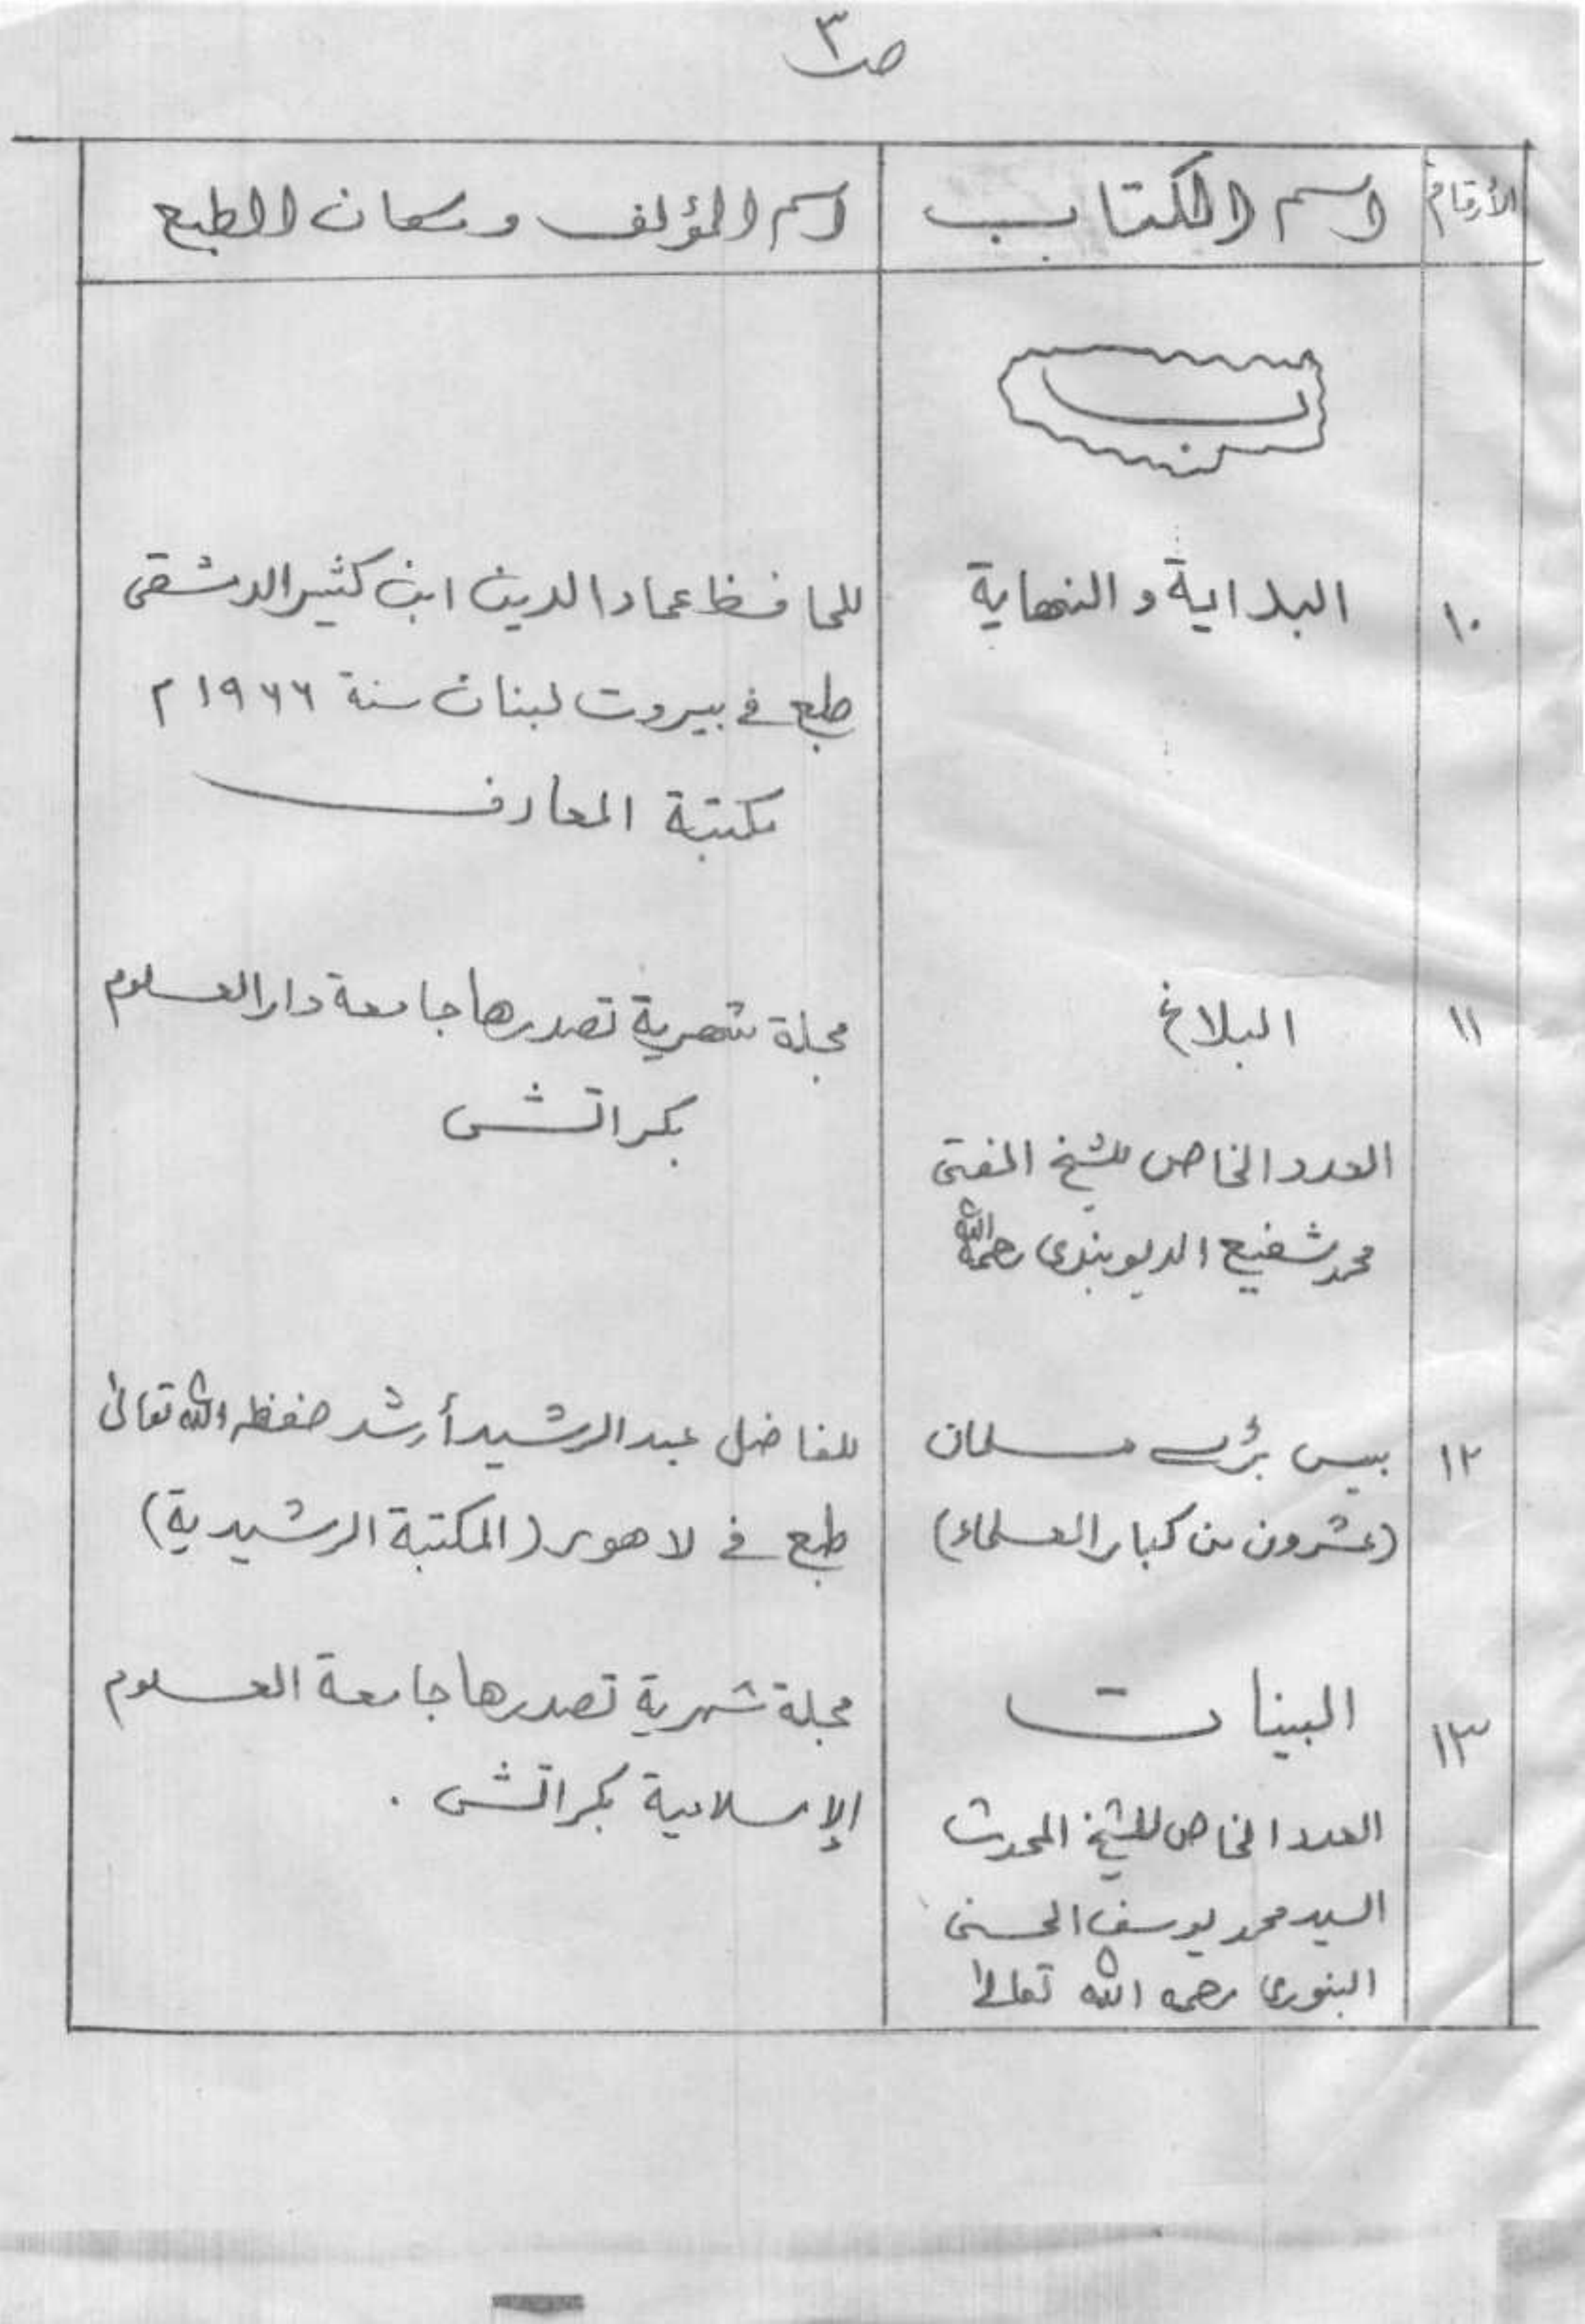 ص ٣
الأرقام
اسم الكتاب
اسم المؤلف ومكان الطبع
ب
١٠
البداية والنهاية
للحافظ عماد الدين ابن كثير الدمشقى
طبع فى بيروت لبنان سنة ١٩٦٦م
مكتبة المعارف
١١
البلاغ
العدد الخاص للشيخ المفتى
محمد شفيع الديوبندى رحمه الله
مجلة شهرية تصدرها جامعة دار العلوم
بكراتشى
١٢
بيس بڑے مسلمان
(عشرون من كبار العلماء)
للفاضل عبد الرشيد أرشد حفظه الله تعالى
طبع فى لاهور (المكتبة الرشيدية)
١٣
البينات
العدد الخاص للشيخ المحدث
السيد محمد يوسف الحسنى
البنورى رحمه الله تعالى
مجلة شهرية تصدرها جامعة العلوم
الإسلامية بكراتشى .